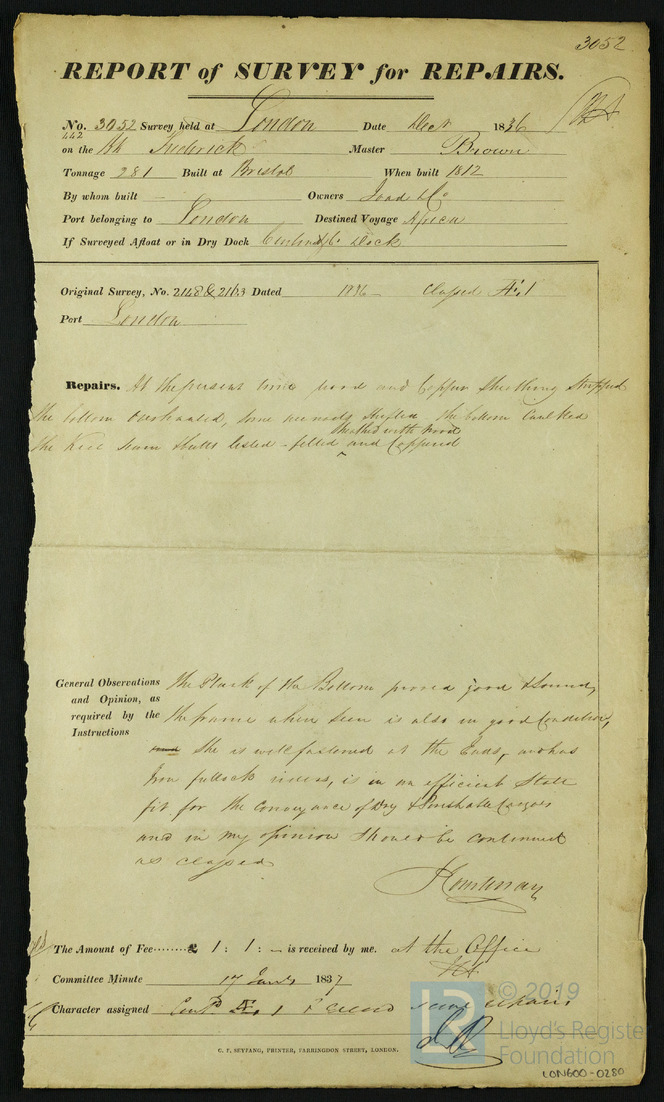 3052
REPORT of SURVEY for REPAIRS.
No. 3052 Survey held at London Date Decr 1836
442
on the Frederick Master Brown
Tonnage 281 Built at Bristol When built 1812
By whom built — Owners Joad & Co
Port belonging to London Destined Voyage Africa
If Surveyed Afloat or in Dry Dock Dock
Original Survey, No. 2148 & 2163 Dated 1836 — Classed Æ 1
Port London
Repairs. At the present time wood and Copper Sheathing stripped
the bottom overhauled, some shifted the bottom Caulked
sheathed with wood
the Keel Seam & butts tested - felted and Coppered
General Observations and Opinion, as required by the Instructions
The Plank of the Bottom proved good & sound,
the frame when seen is also in good Condition,
She is well fastened at the Ends, and has
Iron futtock riders, is in an efficient State
fit for the Conveyance of Dry & Perishable Cargoes
and in my opinion should be continued
as classed
The Amount of Fee........£ 1 : 1 : — is received by me. at the Office
Committee Minute 17 Jany 1837
Character assigned Contd Æ 1 & record some repairs
C. F. SEYFANG, PRINTER, FARRINGDON STREET, LONDON.
LR
© 2019
Lloyd's Register
Foundation
LON600-0280